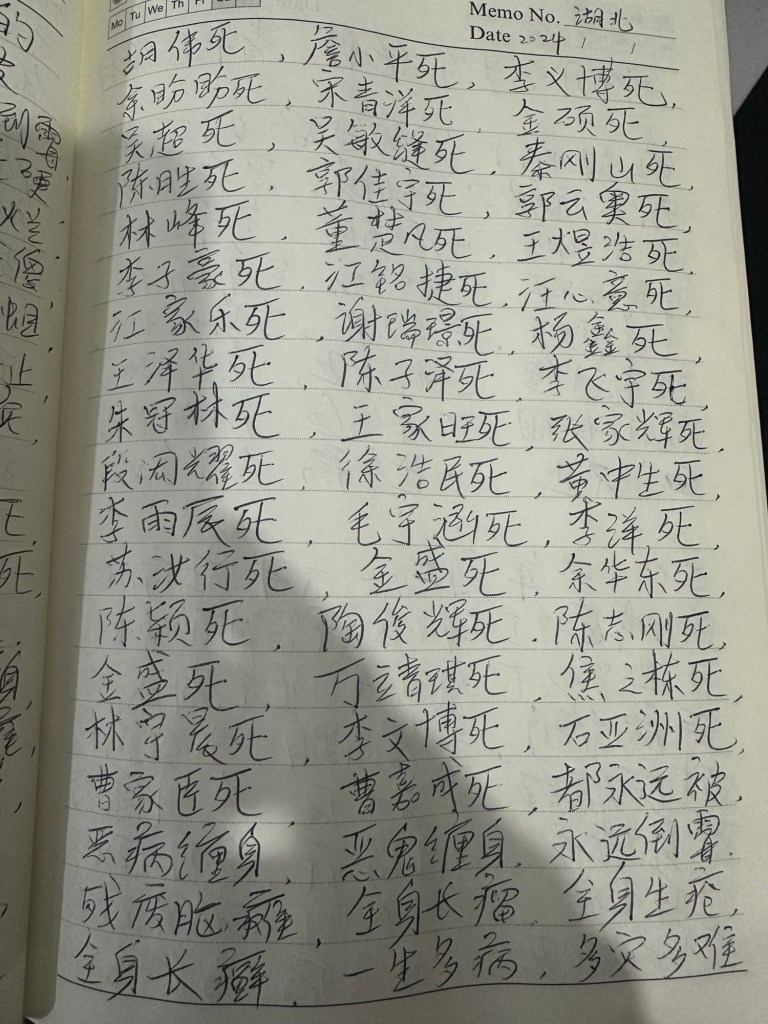 Mo Tu We Th Fr Sa Su
Memo No. 湖北
Date 2024 / /
胡伟死，詹小平死，李义博死，
余盼盼死，宋青洋死，金硕死，
吴超死，吴敏缝死，秦刚山死，
陈胜死，郭佳宇死，郭云奥死，
林峰死，董楚凡死，王煜浩死，
李子豪死，江铭捷死，汪心意死，
江家乐死，谢瑞璟死，杨鑫死，
王泽华死，陈子泽死，李飞宇死，
朱冠林死，王家旺死，张家辉死，
段闳耀死，徐浩民死，黄冲生死，
李雨辰死，毛宇逊死，李洋死，
苏汝行死，金盛死，余华东死，
陈颖死，陶俊辉死，陈志刚死，
金盛死，万靖琪死，焦之栋死，
林宇晨死，李文博死，石亚洲死，
曹家臣死，曹嘉成死，都永远被，
恶病缠身，恶鬼缠身，永远倒霉．
残废脑瘫，全身长瘤，全身生疮，
全身长癣，一生多病，多灾多难